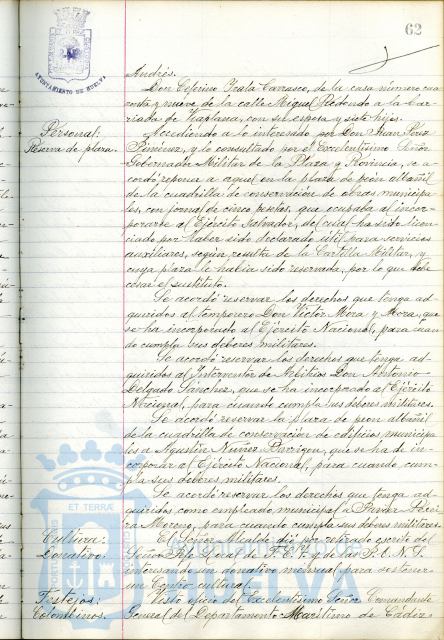 62
AYUNTAMIENTO DE HUELVA
Andrés.
Don Ceferino Irala Carrasco, de la casa número cua
renta y nueve de la calle Miguel Redondo a la bar
riada de Viaplana, con su esposa y siete hijos.
Personal:
Reserva de plaza.
Accediendo a lo interesado por Don Juan Pérez
Giménez, y lo consultado por el Excelentísimo Señor
Gobernador Militar de la Plaza y Provincia, se a-
cordó reponer a aquel en la plaza de peón albañil
de la cuadrilla de conservación de obras municipa-
les, con jornal de cinco pesetas, que ocupaba al incor-
porarse al Ejército Salvador, del cual ha sido licen-
ciado por haber sido declarado útil para servicios
auxiliares, según resulta de la Cartilla Militar, y
cuya plaza le había sido reservada, por lo que debe
cesar el sustituto.
Se acordó reservar los derechos que tenga ad-
quiridos al temporero Don Victor Mora y Mora, que
se ha incorporado al Ejército Nacional, para cuan
do cumpla sus deberes militares.
Se acordó reservar los derechos que tenga ad-
quiridos al Interventor de Arbitrios Don Antonio
Delgado Sánchez, que se ha incorporado al Ejército
Nacional, para cuando cumpla sus deberes militares.
Se acordó reservar la plaza de peon albañil
de la cuadrilla de conservación de edificios municipa-
les a Agustín Núñez Garrigon, que se ha de in-
corporar al Ejército Nacional, para cuando cum-
pla sus deberes militares.
Se acordó reservar los derechos que tenga ad-
quiridos como empleado municipal a
Moreno, para cuando cumpla sus deberes militares
Cultura:
Donativo.
El Señor Alcalde dió por retirado escrito del
Señor Jefe Local de F.E.T. y de las J.O.N.S.
interesando un donativo mensual para sostener
un Centro cultural.
Festejos:
Colombinos.
Visto oficio del Excelentísimo Señor Comandante
General del Departamento Marítimo de Cádiz
ET TERRÆ
Ayuntamiento de
HUELVA